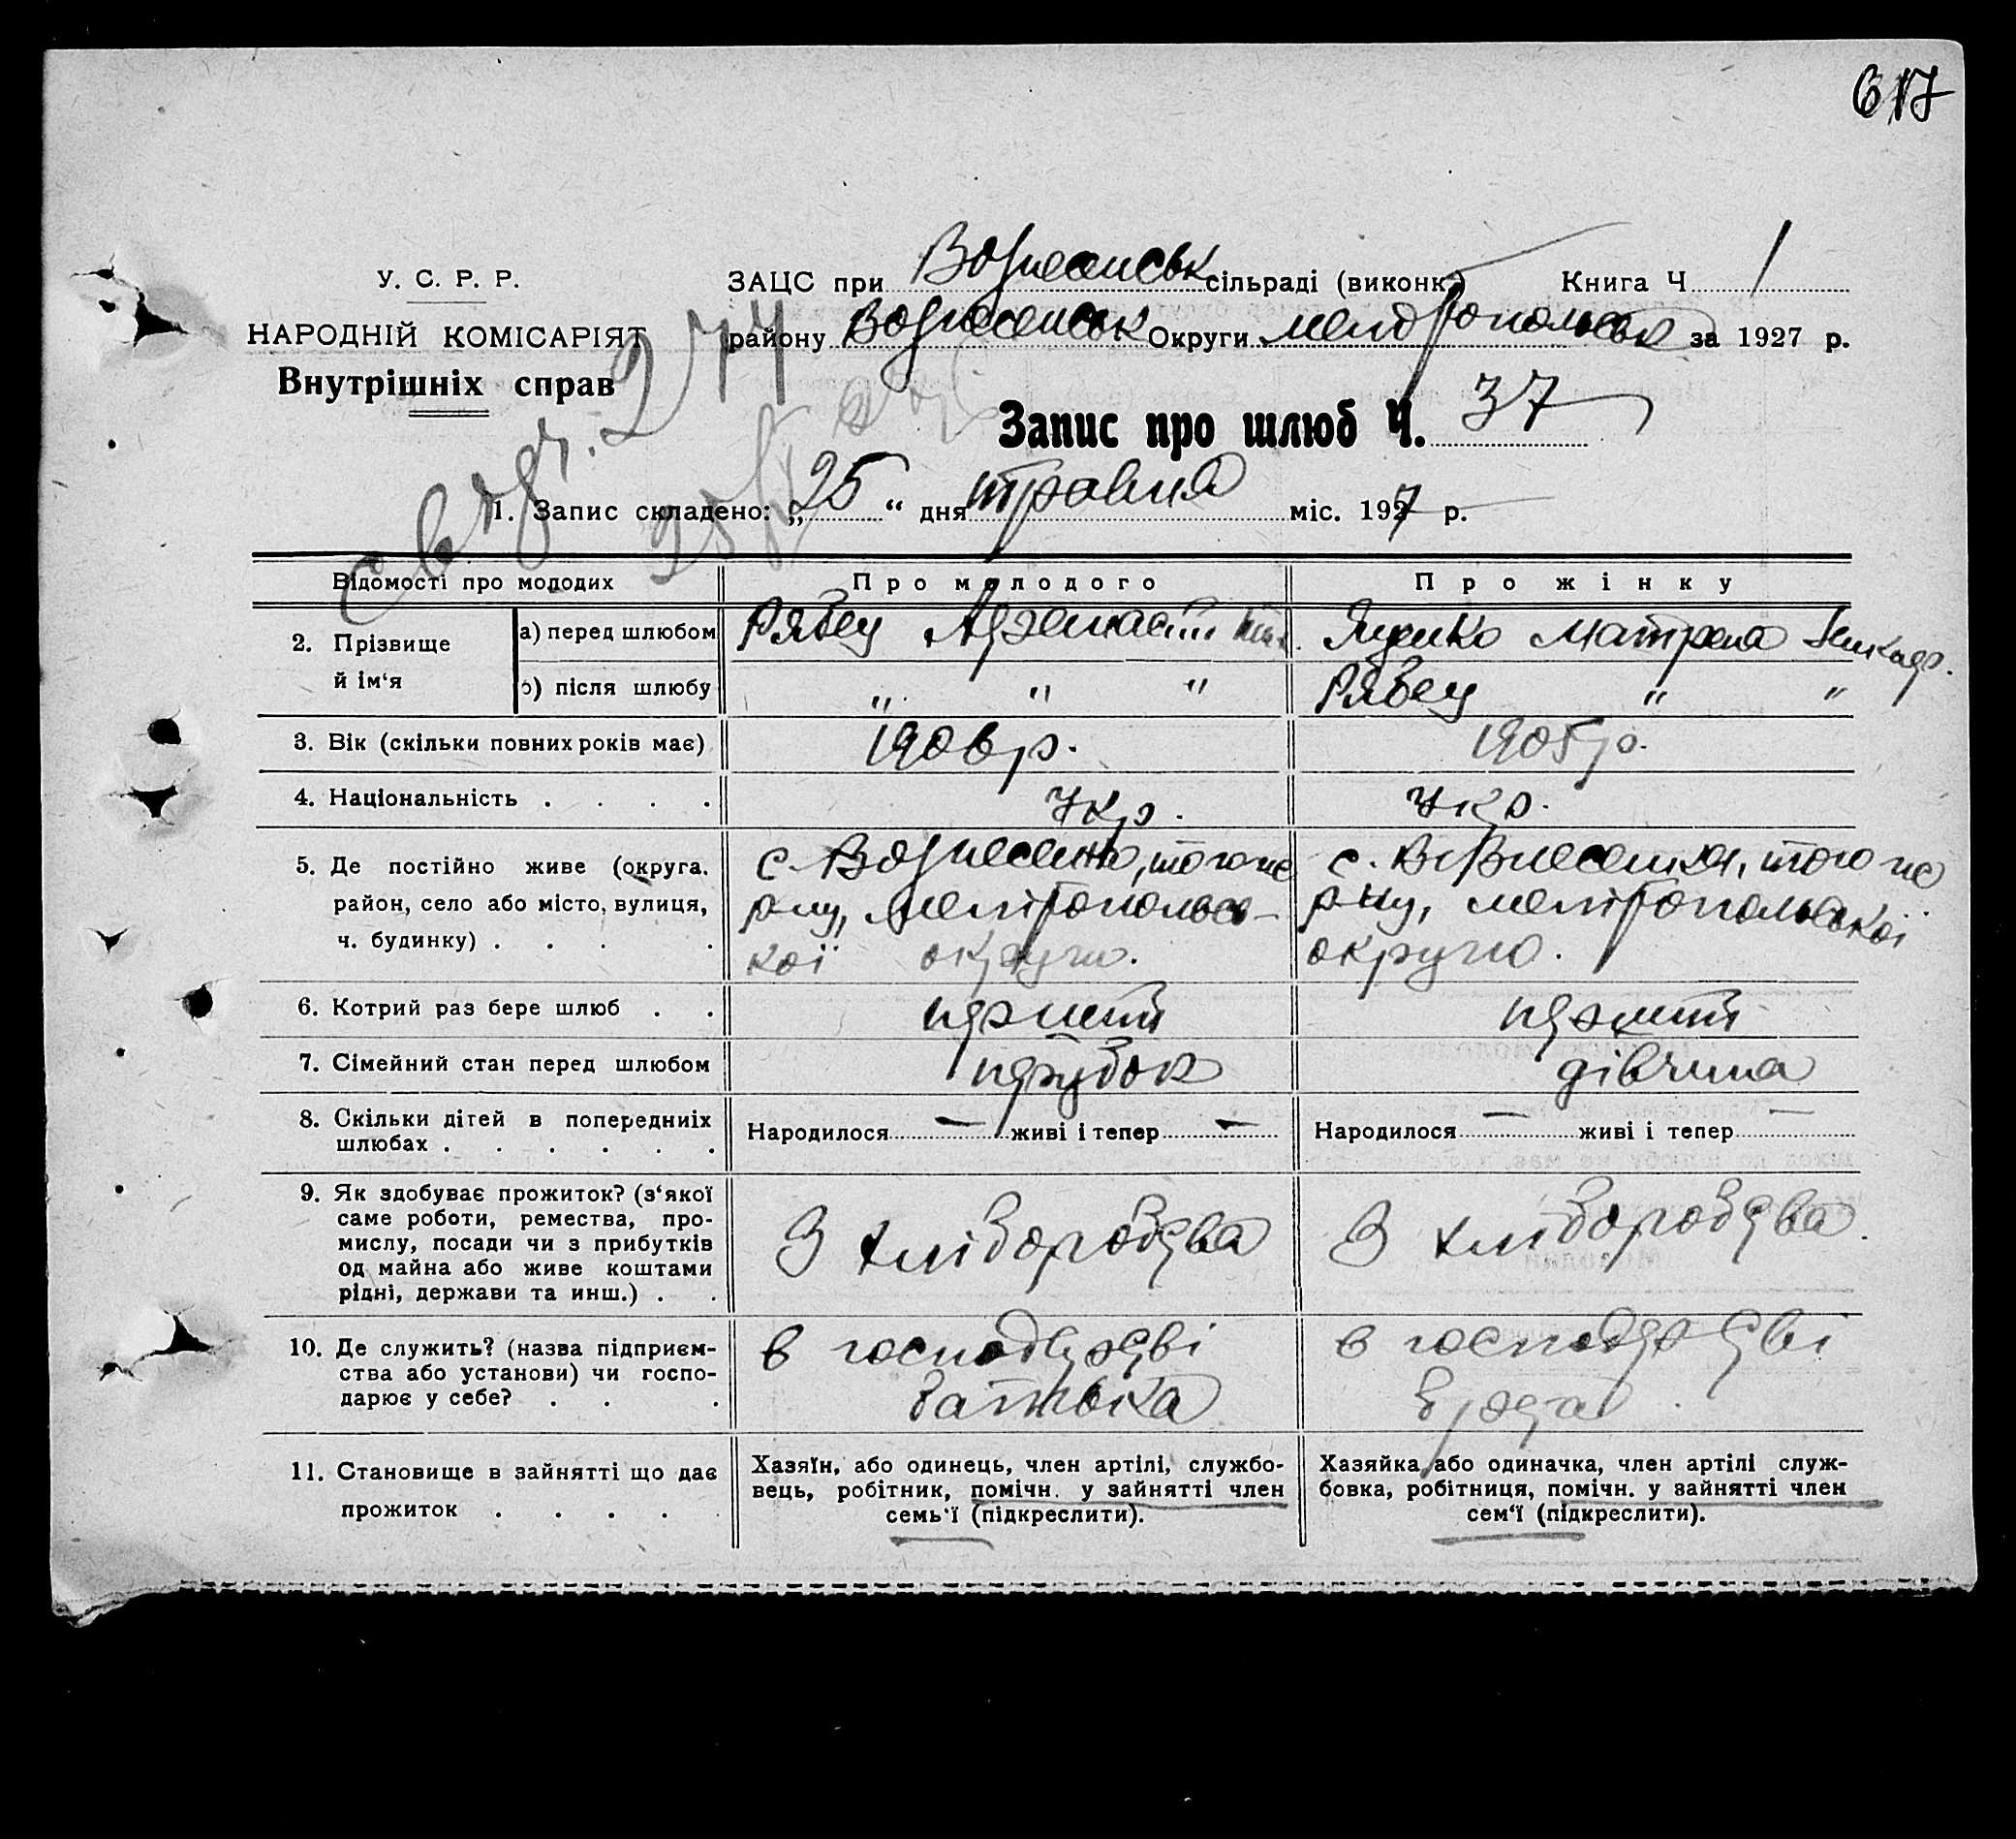 617
У. С. Р. Р.
НАРОДНІЙ КОМІСАРІЯТ
Внутрішніх справ
ЗАЦС при Вознесенськ сільраді (виконк.) Книга Ч 1
району Вознесенськ Округи Мелітопольськ за 1927 р.
Запис про шлюб Ч. 37
274
1. Запис складено: „25“ дня травня міс. 1927 р.
Відомості про молодих
Про молодого
Про жінку
2. Прізвище й ім‘я
а) перед шлюбом
Рябец
Яценко Матрена
б) після шлюбу
„ „ „
Рябец „ „
3. Вік (скільки повних років має)
1906 р.
1905 р.
4. Національність . . . .
Укр.
Укр.
5. Де постійно живе (округа.
район, село або місто, вулиця,
ч. будинку) . . . .
с. Вознесенка, того же
р-ну, Мелітопольсь-
кої округи.
с. Вознесенка, того же
р-ну, Мелітопольської
округи.
6. Котрий раз бере шлюб . .
первий
первий
7. Сімейний стан перед шлюбом
парубок
дівчина
8. Скільки дітей в попередниіх
шлюбах . . . . . .
Народилося — живі і тепер —
Народилося — живі і тепер —
9. Як здобуває прожиток? (з‘якої
саме роботи, ремества, про-
мислу, посади чи з прибутків
од майна або живе коштами
рідні, держави та инш.) . .
З хліборобства
З хліборобства
10. Де служить? (назва підприєм-
ства або установи) чи госпо-
дарює у себе? . . .
в господарстві
батька
в господарстві
брата
11. Становище в зайнятті що дає
прожиток . . . . .
Хазяїн, або одинець, член артілі, службо-
вець, робітник, помічн. у зайнятті член
семь‘ї (підкреслити).
Хазяйка або одиначка, член артілі служ-
бовка, робітниця, помічн. у зайнятті член
сем‘ї (підкреслити).